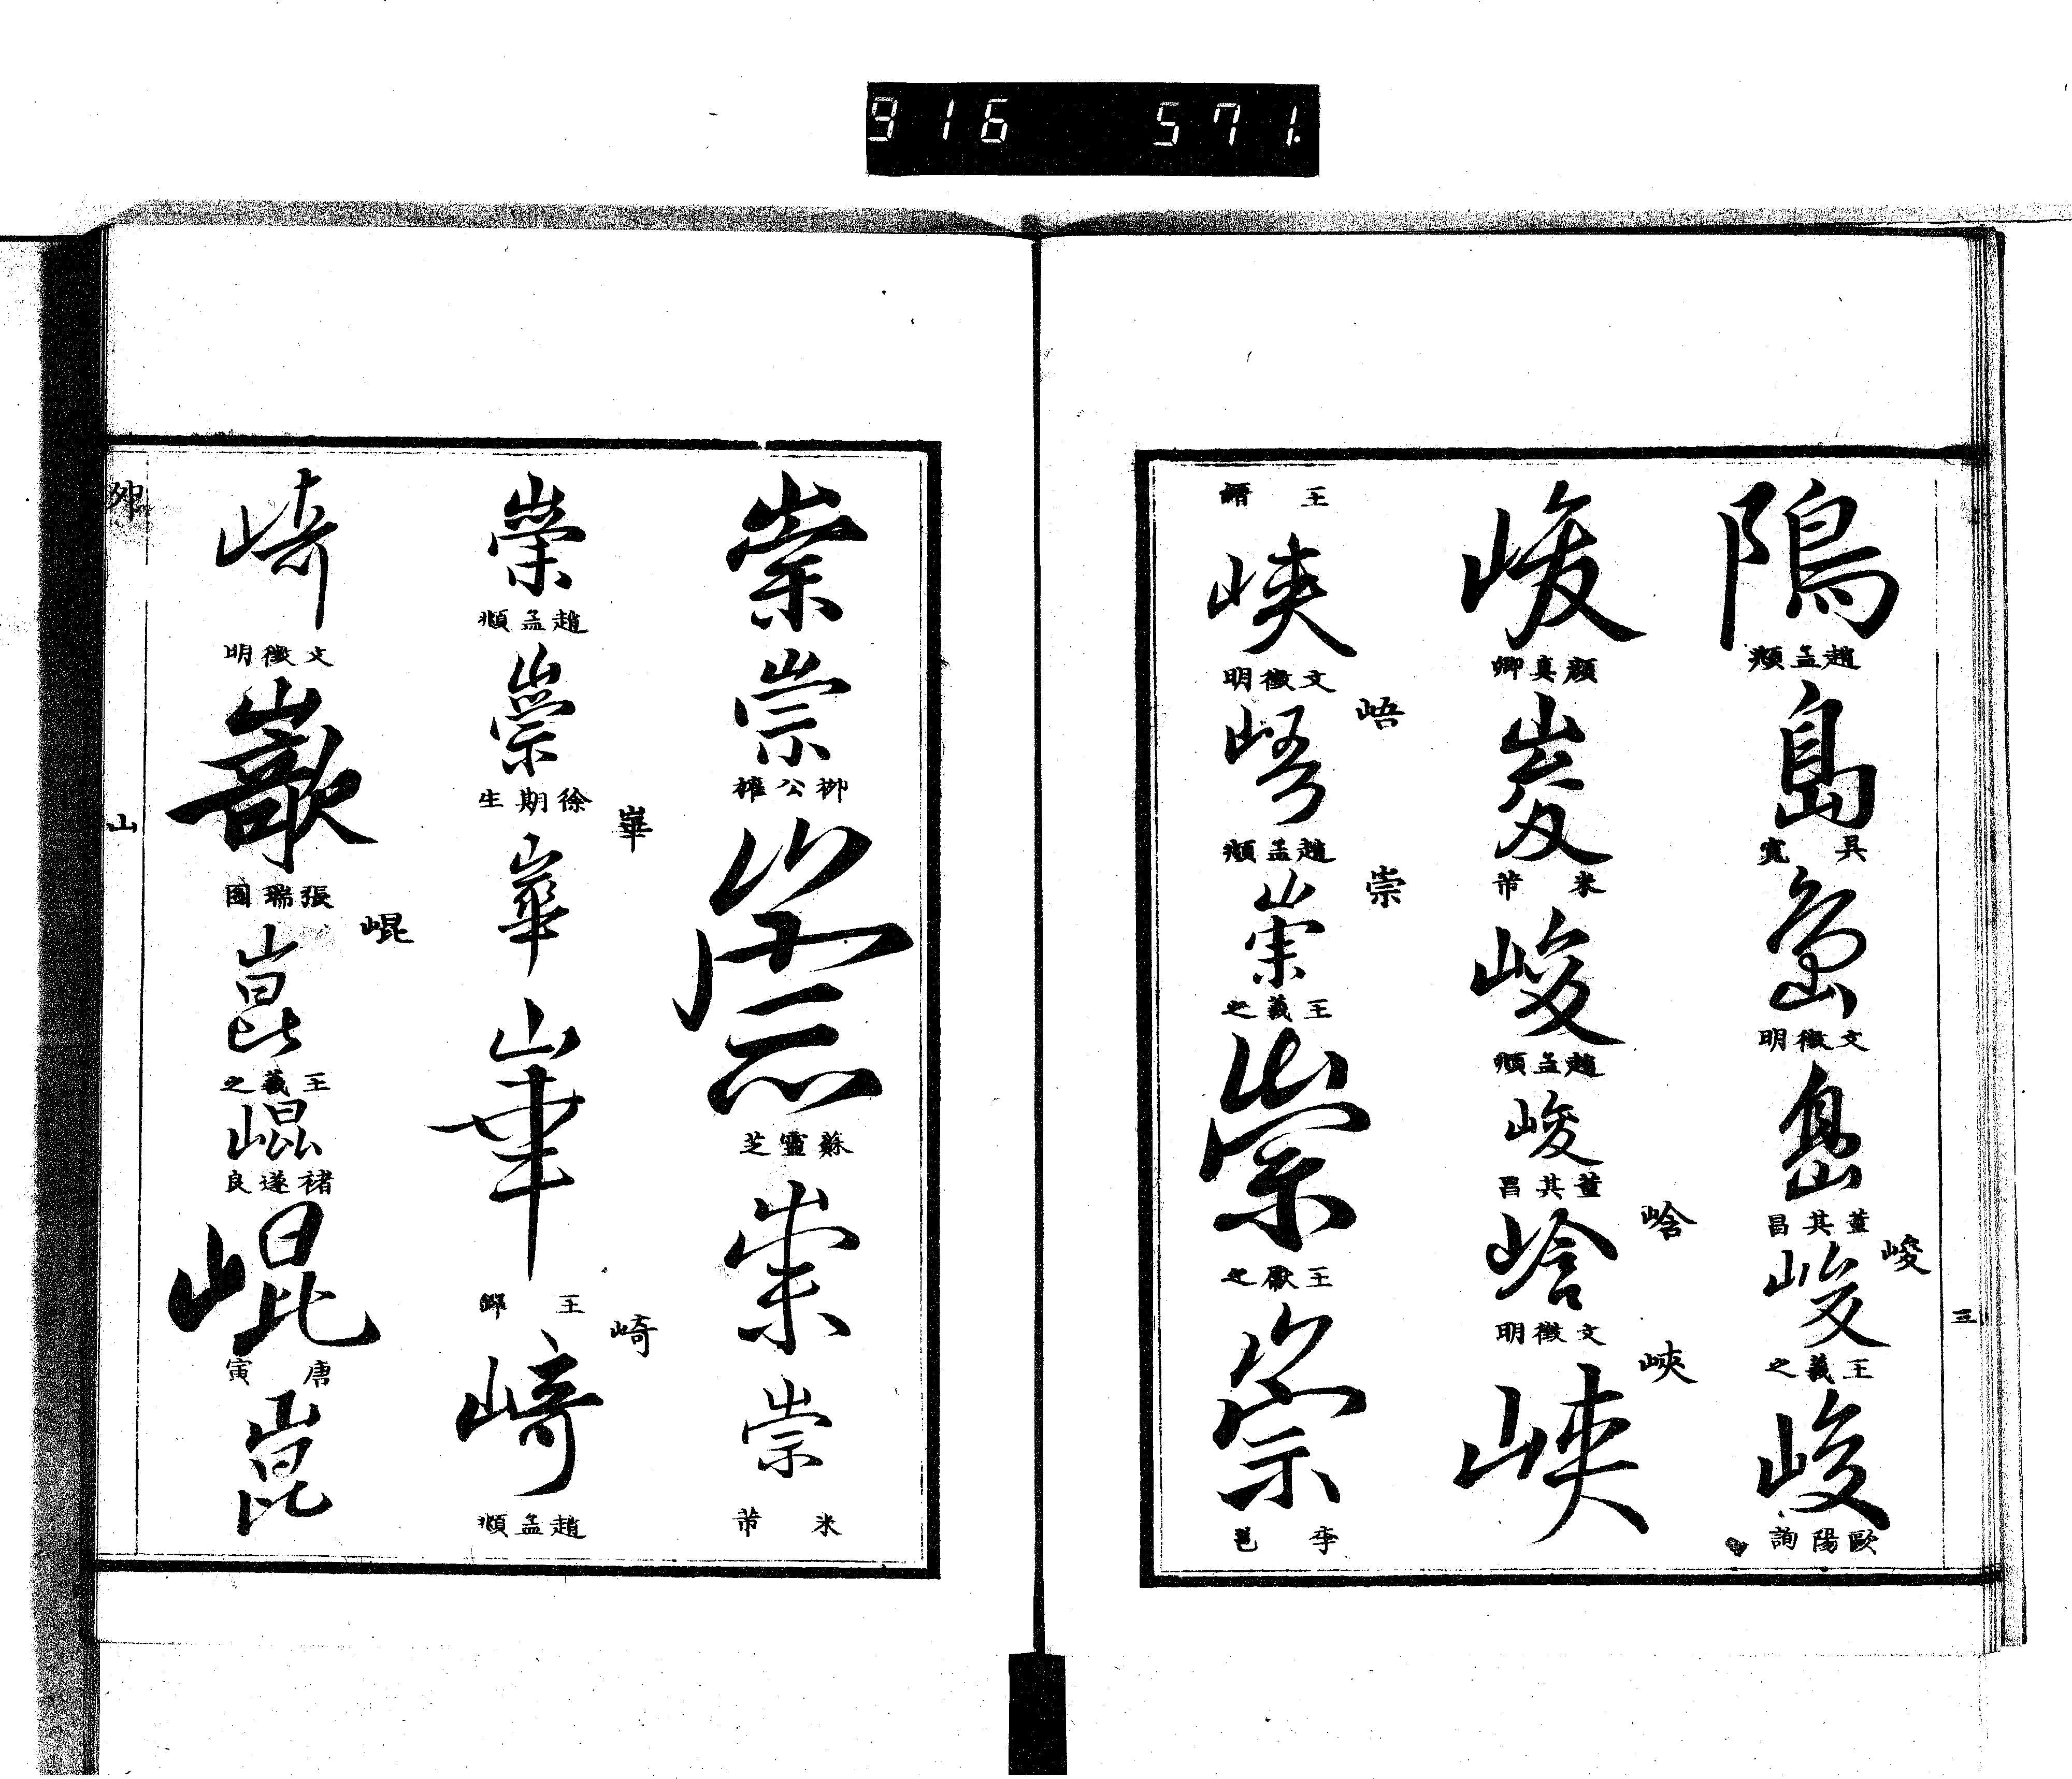 916 571.
隝
趙孟頫
島
吳寬
島
文徵明
島
董其昌
峻
峻
王羲之
峻
歐陽詢
三
峻
顏真卿
峻
米芾
峻
趙孟頫
峻
董其昌
峆
峆
文徵明
峽
峽
王縉
峽
文徵明
峿
峿
趙孟頫
崇
崇
王羲之
崇
王獻之
崇
李邕
崇
崇
柳公權
崇
蘇靈芝
崇
崇
米芾
崇
趙孟頫
崇
徐期生
崋
崋
崋
王鐸
崎
崎
趙孟頫
崎
文徵明
張瑞圖
崐
崑
王羲之
崐
褚遂良
崐
唐寅
崑
山